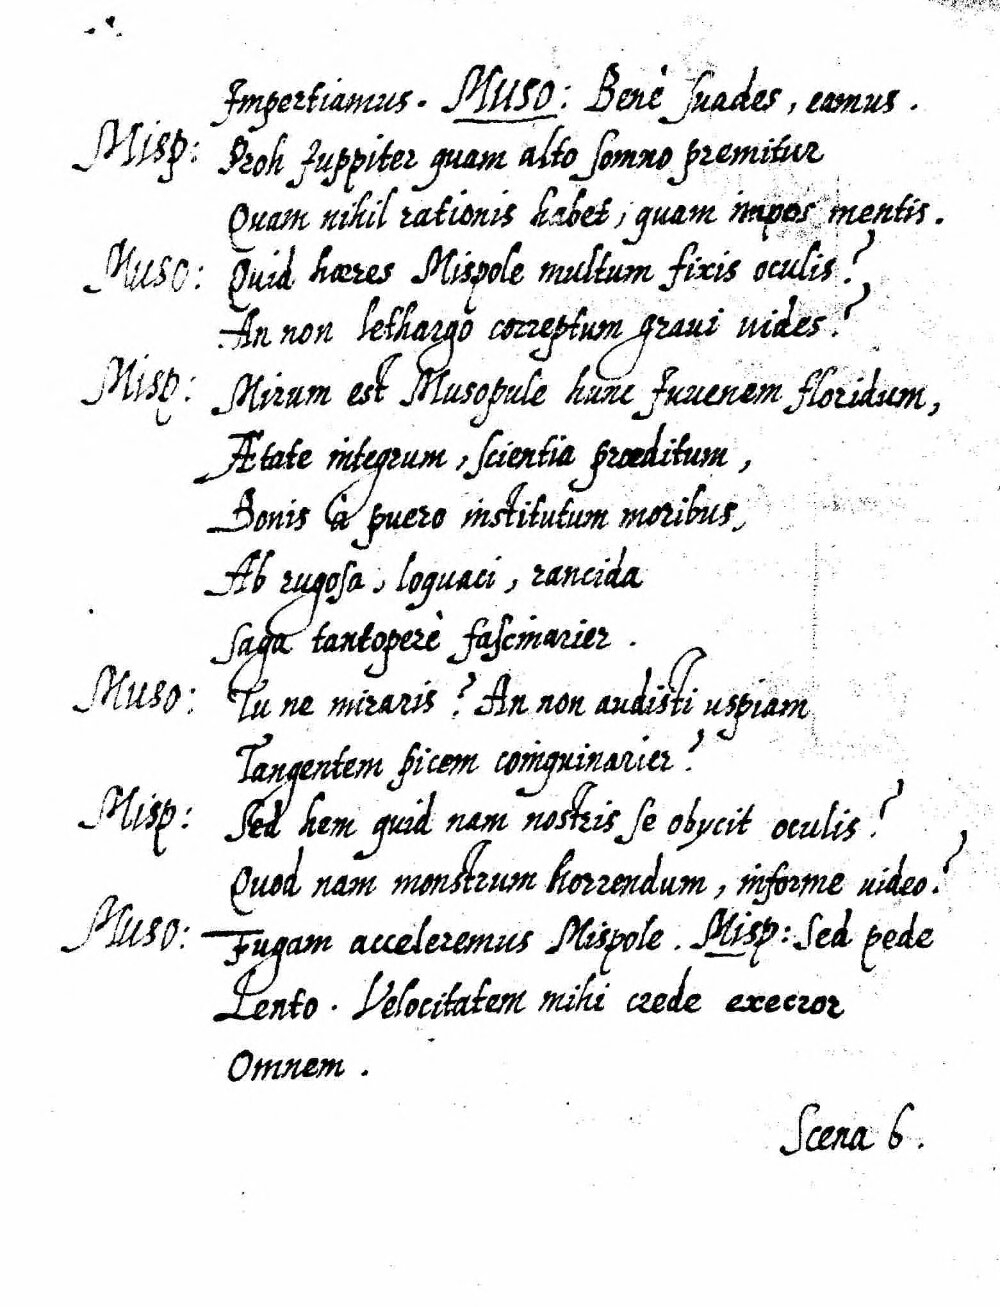 Impertiamus. Muso: Benè suades, eamus.
Misp: Proh Juppiter quam alto somno premitur
Quam nihil rationis habet, quam impos mentis.
Muso: Quid hæres Mispole multum fixis oculis?
An non lethargo correptum graui uides?
Misp: Mirum est Musopule hunc Juuenem floridum,
Ætate integrum, scientia præditum,
Bonis à puero institutum moribus,
Ab rugosa, loquaci, rancida
saga tantoperè fascinarier.
Muso: Tu ne miraris? An non audisti uspiam
Tangentem picem coinquinarier?
Misp: Sed hem quid nam nostris se obycit oculis?
Quod nam monstrum horrendum, informe uideo?
Muso: Fugam acceleremus Mispole. Misp: Sed pede
Lento. Velocitatem mihi crede execror
Omnem.
Scena 6.